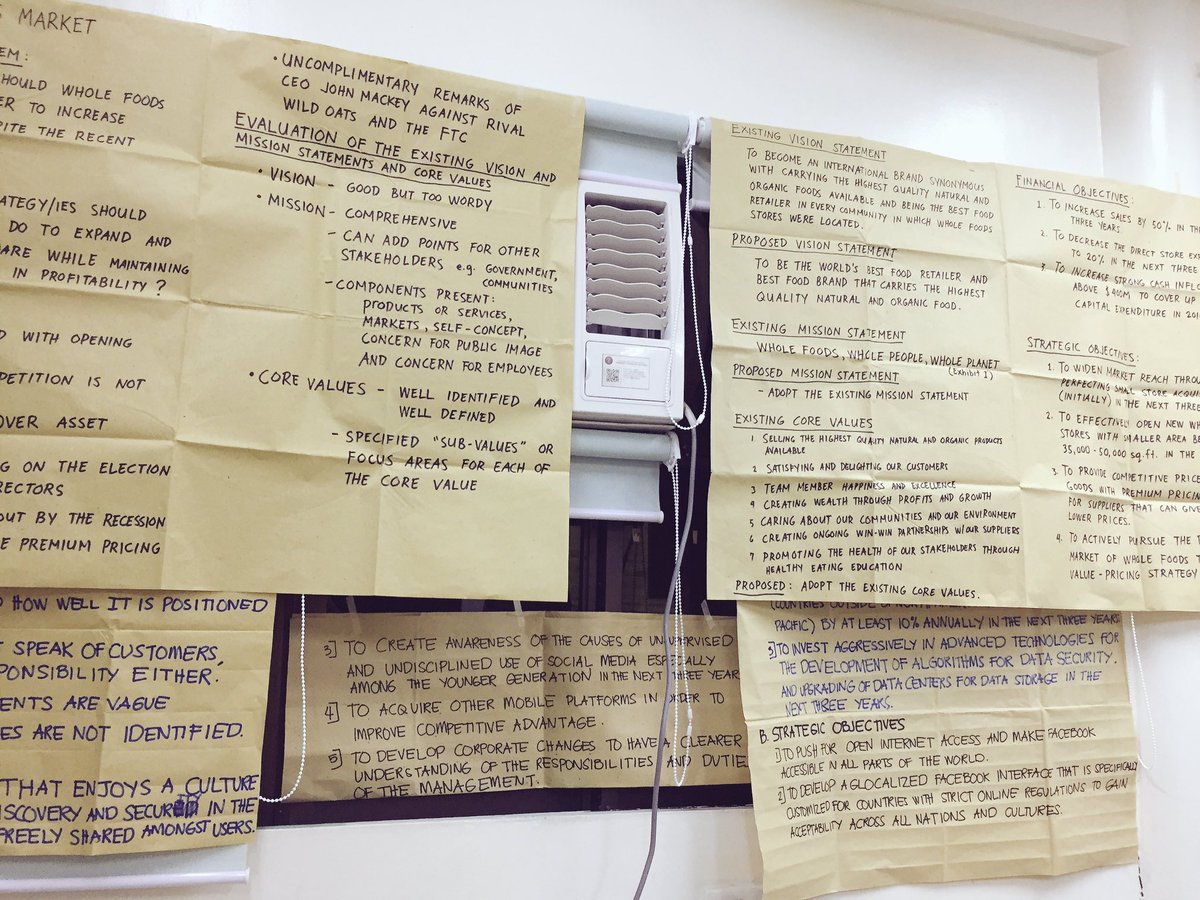 MARKET
EM:
SHOULD WHOLE FOODS
ER TO INCREASE
PITE THE RECENT
ATEGY/IES SHOULD
DO TO EXPAND AND
ARE WHILE MAINTAINING
IN PROFITABILITY?
D WITH OPENING
PETITION IS NOT
OVER ASSET
G ON THE ELECTION
RECTORS
OUT BY THE RECESSION
E PREMIUM PRICING
• UNCOMPLIMENTARY REMARKS OF
CEO JOHN MACKEY AGAINST RIVAL
WILD OATS AND THE FTC
EVALUATION OF THE EXISTING VISION AND
MISSION STATEMENTS AND CORE VALUES
• VISION - GOOD BUT TOO WORDY
• MISSION - COMPREHENSIVE
- CAN ADD POINTS FOR OTHER
STAKEHOLDERS e.g. GOVERNMENT,
COMMUNITIES
- COMPONENTS PRESENT:
PRODUCTS OR SERVICES,
MARKETS, SELF-CONCEPT,
CONCERN FOR PUBLIC IMAGE
AND CONCERN FOR EMPLOYEES
• CORE VALUES - WELL IDENTIFIED AND
WELL DEFINED
- SPECIFIED "SUB-VALUES" OR
FOCUS AREAS FOR EACH OF
THE CORE VALUE
EXISTING VISION STATEMENT
TO BECOME AN INTERNATIONAL BRAND SYNONYMOUS
WITH CARRYING THE HIGHEST QUALITY NATURAL AND
ORGANIC FOODS AVAILABLE AND BEING THE BEST FOOD
RETAILER IN EVERY COMMUNITY IN WHICH WHOLE FOODS
STORES WERE LOCATED.
PROPOSED VISION STATEMENT
TO BE THE WORLD'S BEST FOOD RETAILER AND
BEST FOOD BRAND THAT CARRIES THE HIGHEST
QUALITY NATURAL AND ORGANIC FOOD.
EXISTING MISSION STATEMENT
WHOLE FOODS, WHOLE PEOPLE, WHOLE PLANET
(Exhibit 1)
PROPOSED MISSION STATEMENT
- ADOPT THE EXISTING MISSION STATEMENT
EXISTING CORE VALUES
1. SELLING THE HIGHEST QUALITY NATURAL AND ORGANIC PRODUCTS
AVAILABLE
2 SATISFYING AND DELIGHTING OUR CUSTOMERS
3 TEAM MEMBER HAPPINESS AND EXCELLENCE
4 CREATING WEALTH THROUGH PROFITS AND GROWTH
5 CARING ABOUT OUR COMMUNITIES AND OUR ENVIRONMENT
6 CREATING ONGOING WIN-WIN PARTNERSHIPS W/OUR SUPPLIERS
7 PROMOTING THE HEALTH OF OUR STAKEHOLDERS THROUGH
HEALTHY EATING EDUCATION
PROPOSED: ADOPT THE EXISTING CORE VALUES.
FINANCIAL OBJECTIVES:
1. TO INCREASE SALES BY 50% IN THE
THREE YEARS.
2. TO DECREASE THE DIRECT STORE EXP
TO 20% IN THE NEXT THREE
3. TO INCREASE STRONG CASH INFLO
ABOVE $400M TO COVER UP
CAPITAL EXPENDITURE IN 201
STRATEGIC OBJECTIVES:
1. TO WIDEN MARKET REACH THROU
PERFECTING SMALL STORE ACQUI
(INITIALLY) IN THE NEXT THREE
2. TO EFFECTIVELY OPEN NEW WH
STORES WITH SMALLER AREA BE
35,000-50,000 sq.ft. IN THE
3. TO PROVIDE COMPETITIVE PRICE
GOODS WITH PREMIUM PRICIN
FOR SUPPLIERS THAT CAN GIVE
LOWER PRICES.
4. TO ACTIVELY PURSUE THE
MARKET OF WHOLE FOODS T
VALUE-PRICING STRATEGY
HOW WELL IT IS POSITIONED
T SPEAK OF CUSTOMERS,
PONSIBILITY EITHER.
ENTS ARE VAGUE
ES ARE NOT IDENTIFIED.
THAT ENJOYS A CULTURE
ISCOVERY AND SECURED IN THE
FREELY SHARED AMONGST USERS.
3] TO CREATE AWARENESS OF THE CAUSES OF UNSUPERVISED
AND UNDISCIPLINED USE OF SOCIAL MEDIA ESPECIALLY
AMONG THE YOUNGER GENERATION IN THE NEXT THREE YEAR
4] TO ACQUIRE OTHER MOBILE PLATFORMS IN ORDER TO
IMPROVE COMPETITIVE ADVANTAGE.
5] TO DEVELOP CORPORATE CHANGES TO HAVE A CLEARER
UNDERSTANDING OF THE RESPONSIBILITIES AND DUTIE
OF THE MANAGEMENT.
(COUNTRIES OUTSIDE OF
PACIFIC) BY AT LEAST 10% ANNUALLY IN THE NEXT THREE YEARS
3] TO INVEST AGGRESSIVELY IN ADVANCED TECHNOLOGIES FOR
THE DEVELOPMENT OF ALGORITHMS FOR DATA SECURITY,
AND UPGRADING OF DATA CENTERS FOR DATA STORAGE IN THE
NEXT THREE YEARS.
B. STRATEGIC OBJECTIVES
1] TO PUSH FOR OPEN INTERNET ACCESS AND MAKE FACEBOOK
ACCESSIBLE IN ALL PARTS OF THE WORLD.
2] TO DEVELOP A GLOCALIZED FACEBOOK INTERFACE THAT IS SPECIFICALLY
CUSTOMIZED FOR COUNTRIES WITH STRICT ONLINE REGULATIONS TO GAIN
ACCEPTABILITY ACROSS ALL NATIONS AND CULTURES.